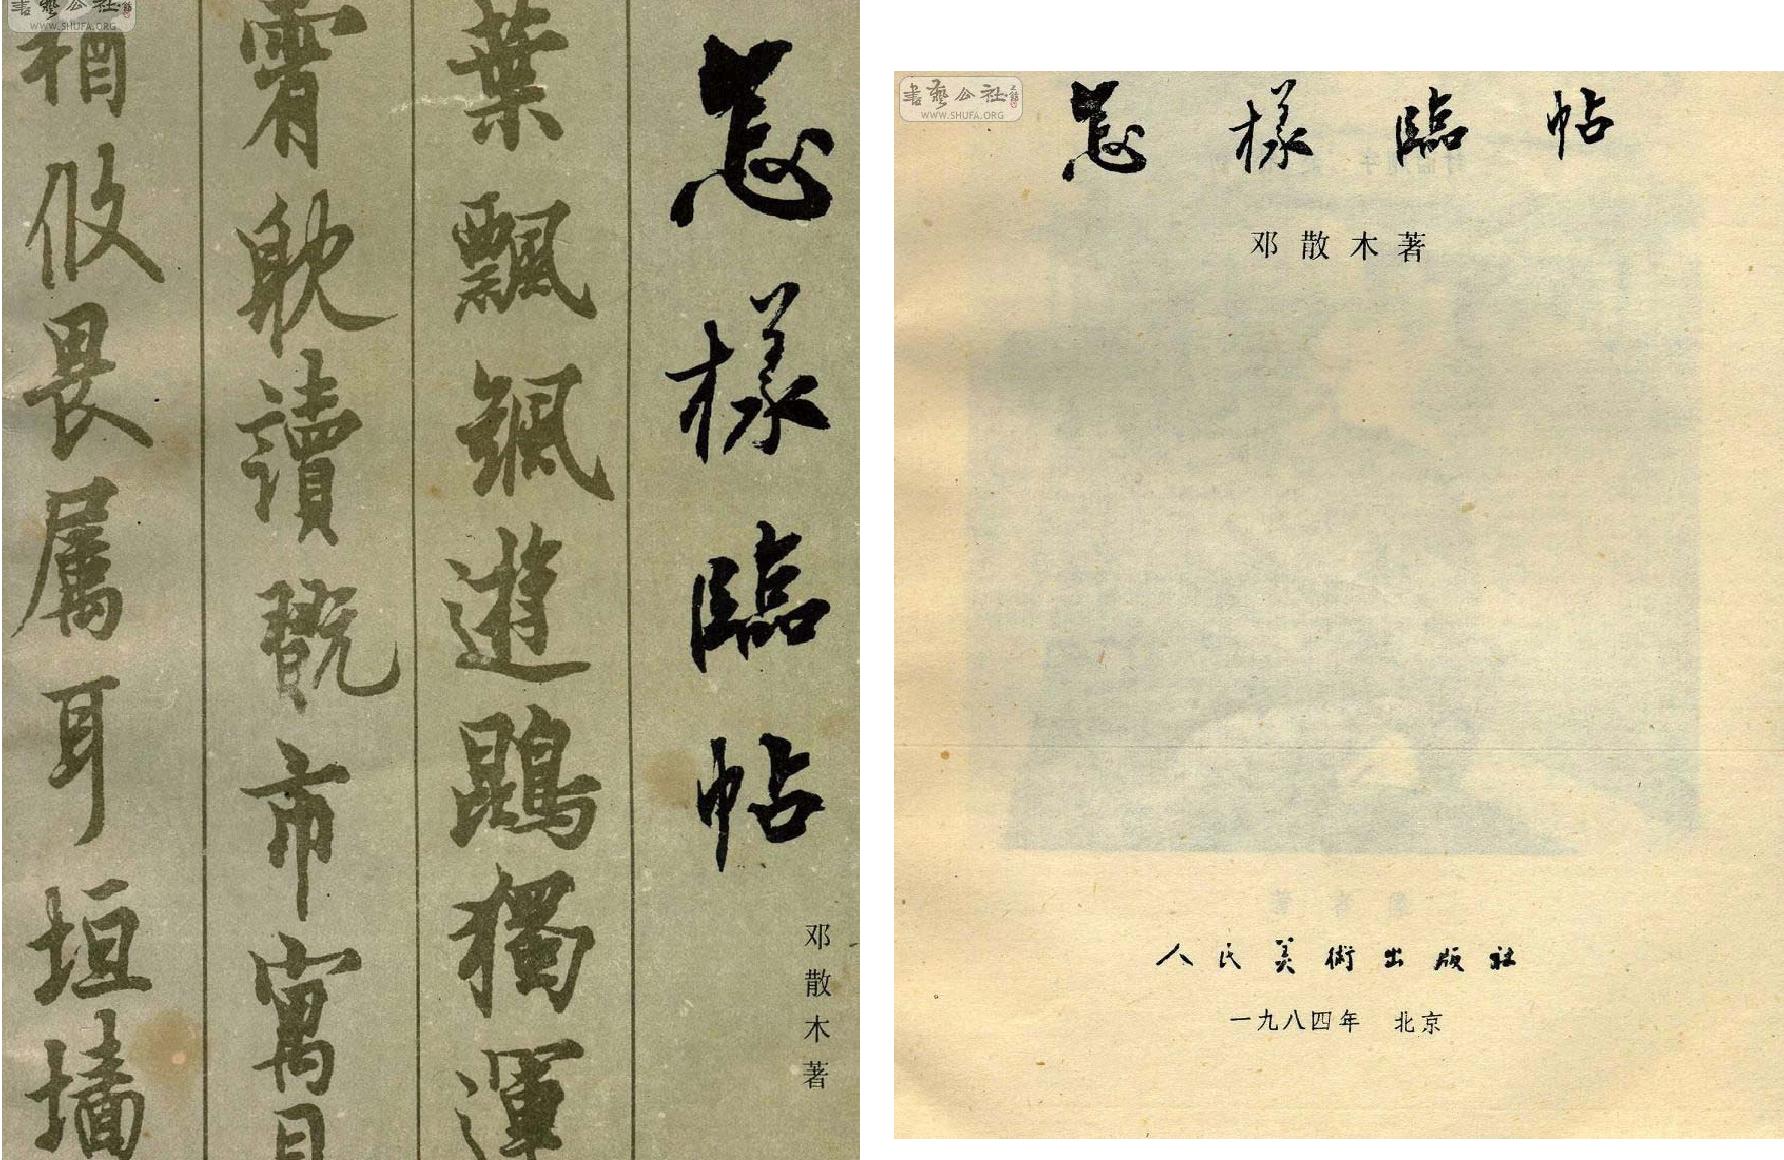 書藝公社
WWW.SHUFA.ORG
怎樣臨帖
邓散木著
葉飄颻遊鵾獨運
霄躭讀翫市寓目
輶攸畏屬耳垣墻
書藝公社
WWW.SHUFA.ORG
怎樣臨帖
邓散木著
人民美術出版社
一九八四年 北京